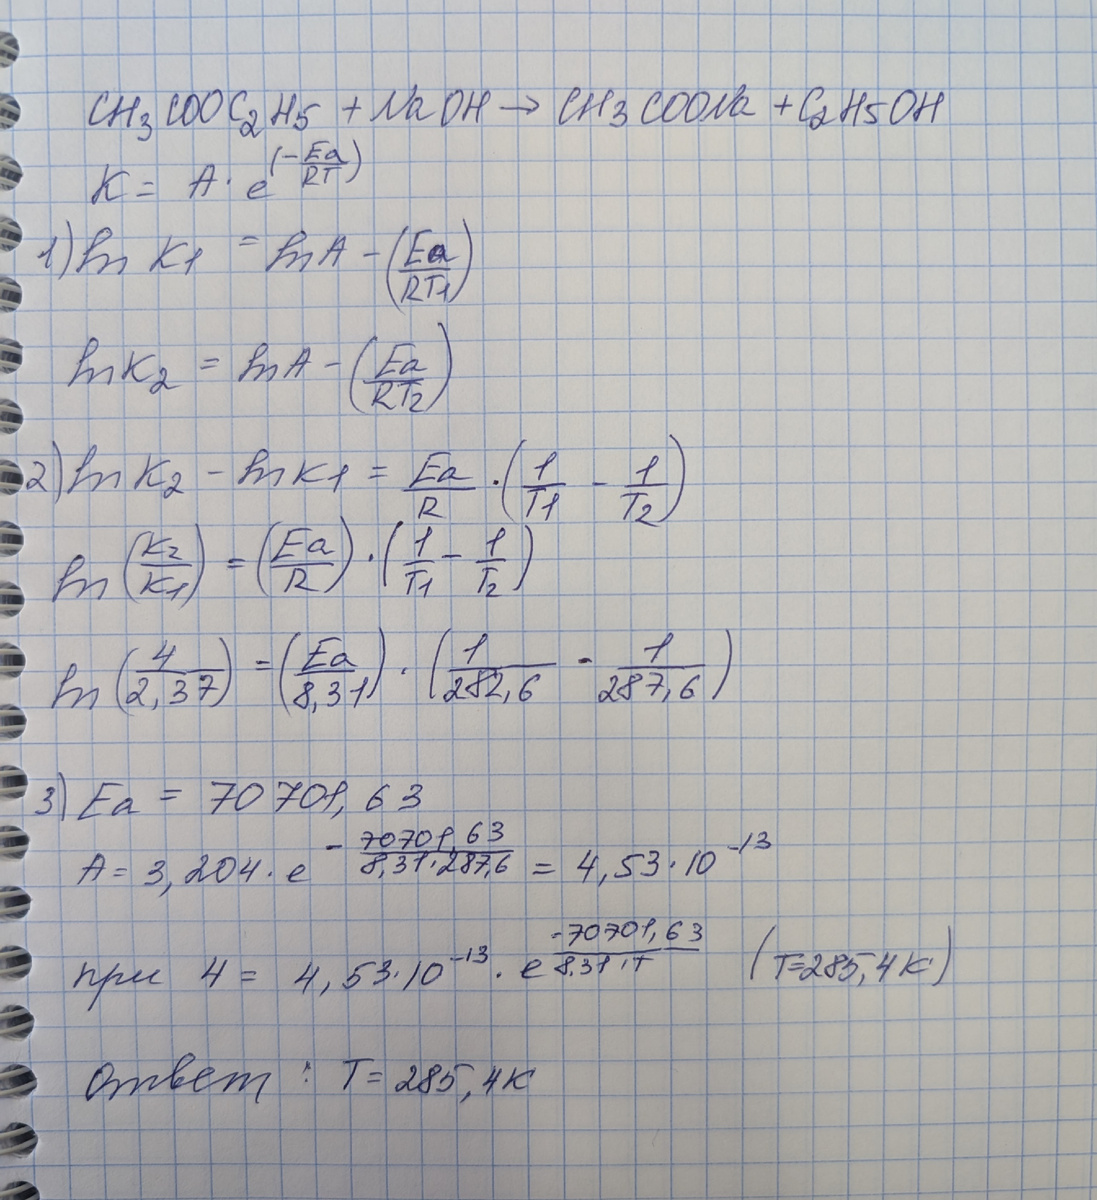 CH3COOC2H5 + NaOH → CH3COONa + C2H5OH
K = A · e^(-Ea/RT)
1) ln K1 = lnA - (Ea/RT1)
lnK2 = lnA - (Ea/RT2)
2) lnK2 - lnK1 = Ea/R · (1/T1 - 1/T2)
ln(K2/K1) = (Ea/R) · (1/T1 - 1/T2)
ln(4/2,37) = (Ea/8,31) · (1/282,6 - 1/287,6)
3) Ea = 70701,63
A = 3,204 · e^(-70701,63/8,31·287,6) = 4,53·10^-13
при 4 = 4,53·10^-13 · e^(-70701,63/8,31·T) (T=285,4K)
Ответ: T = 285,4K